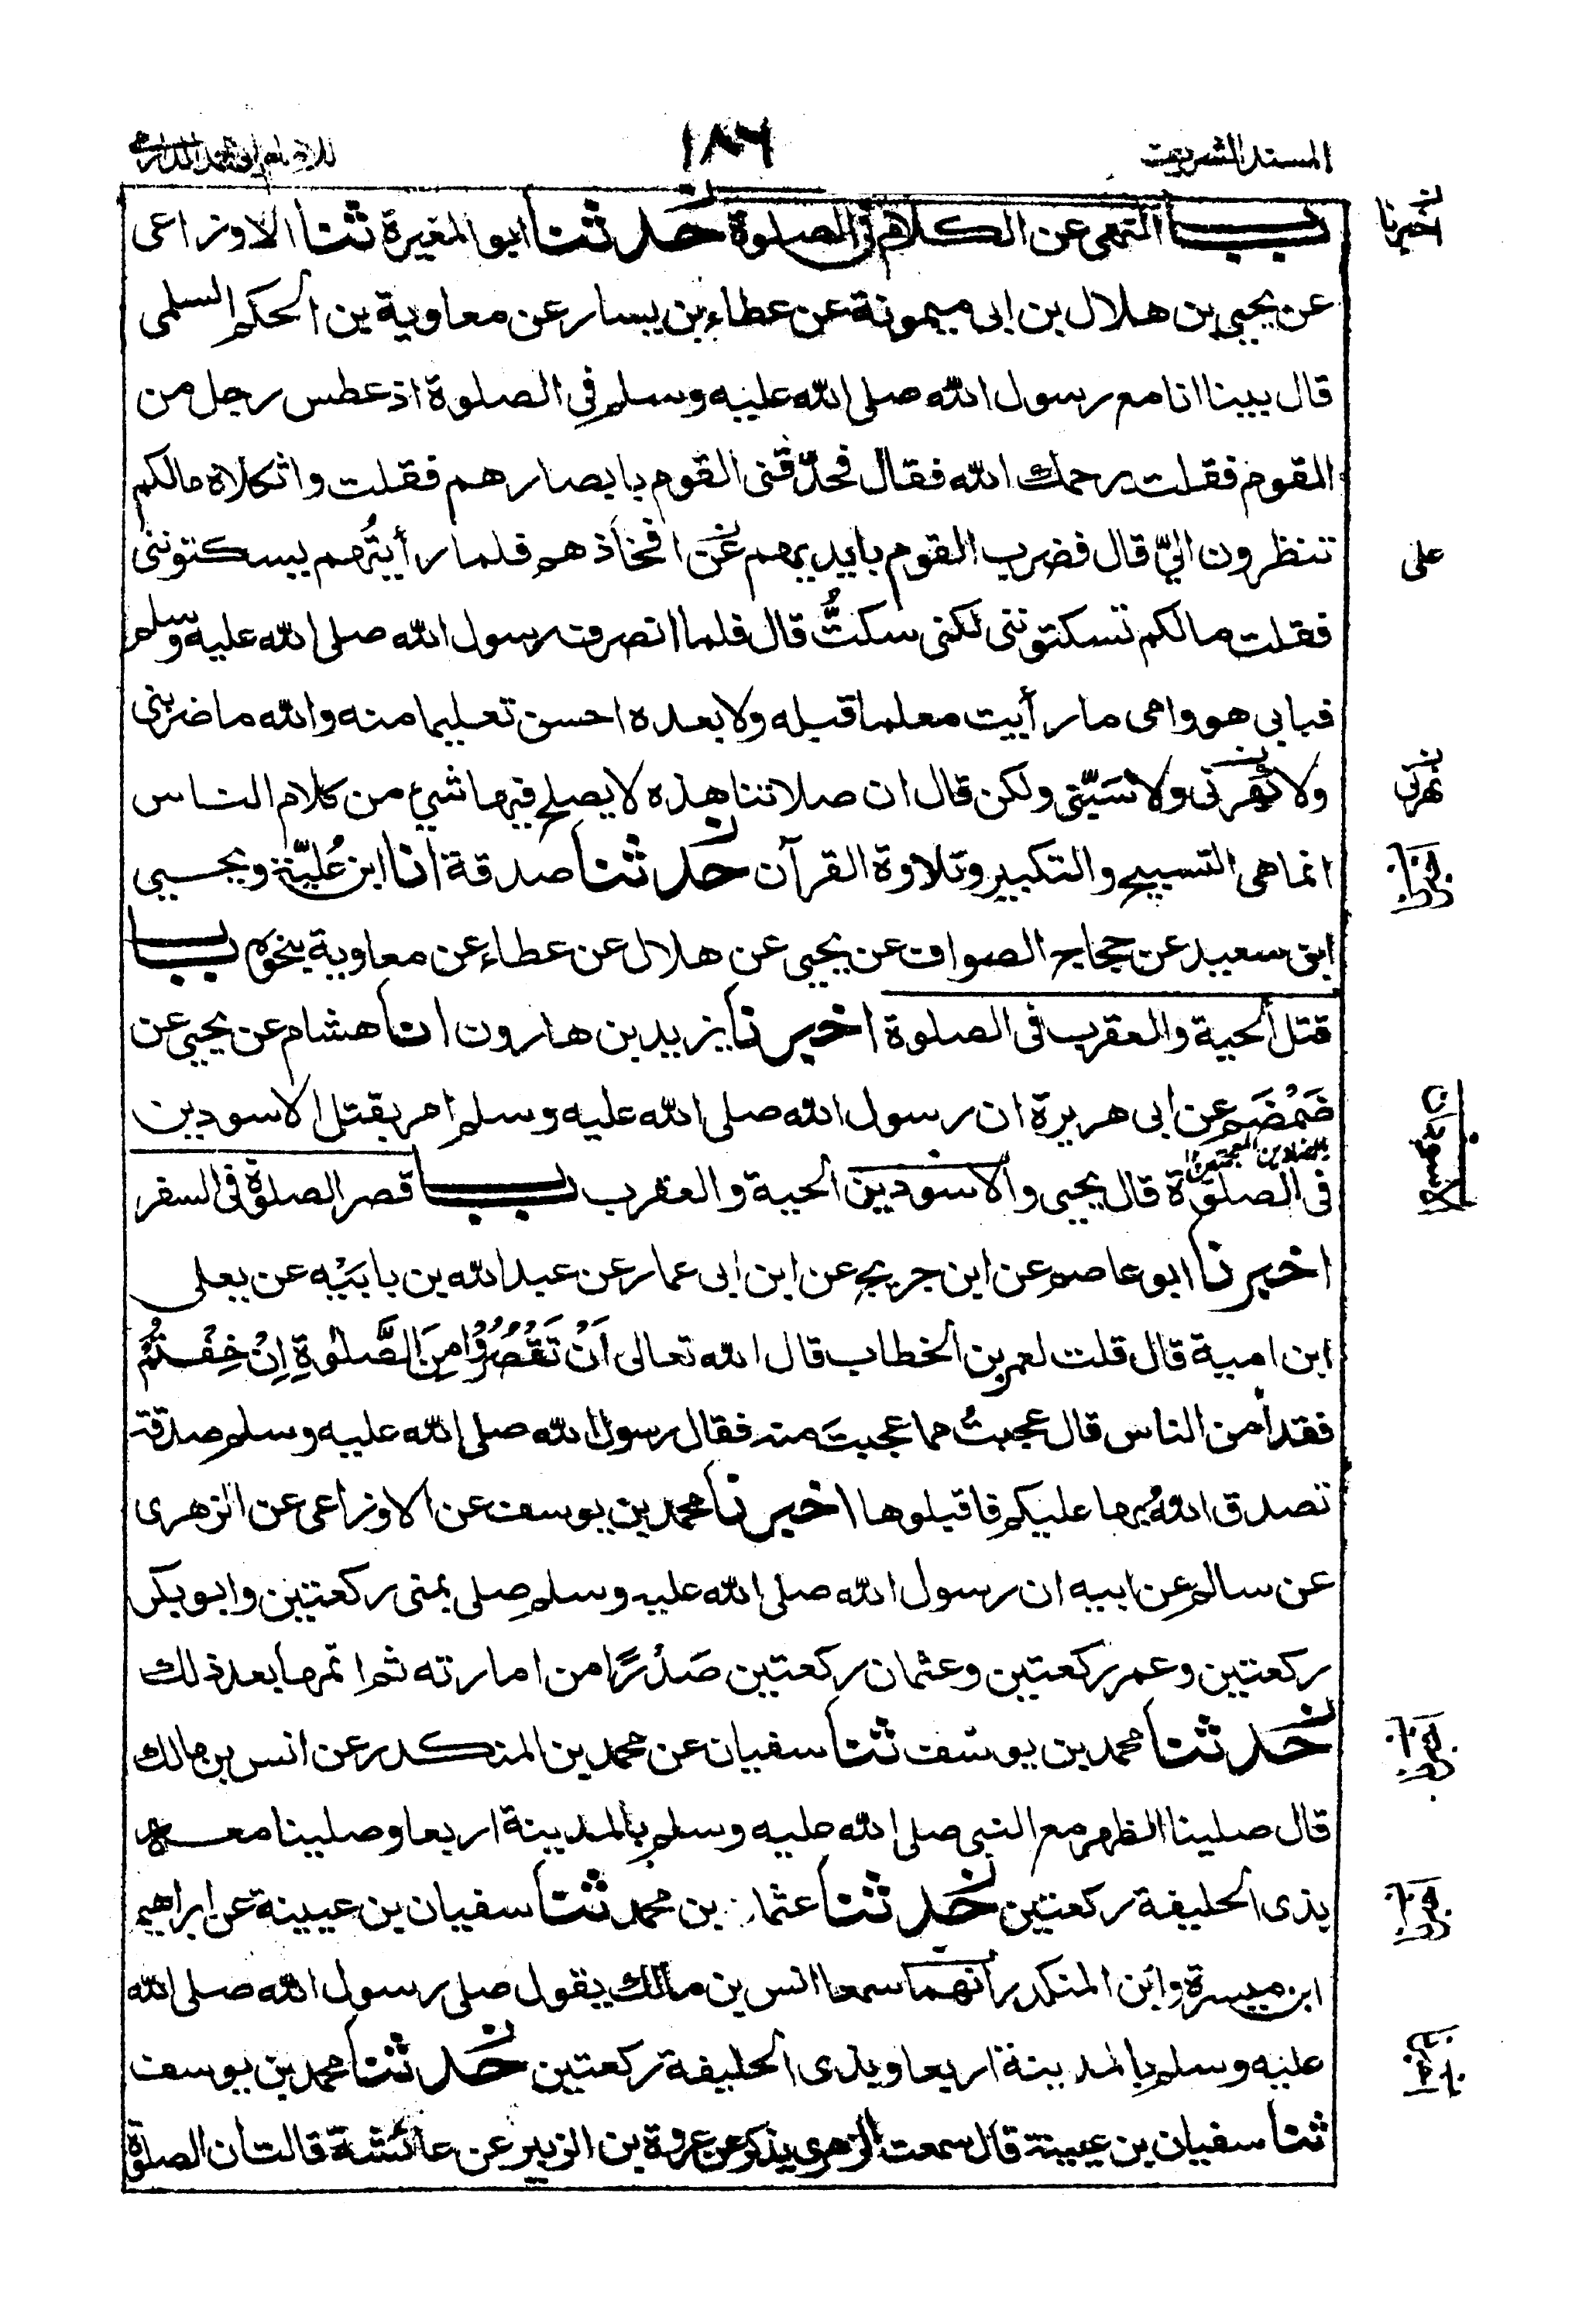 المسند الشريف
١٨٦
للامام ابي محمد الدارمي
باب النهى عن الكلام فى الصلوة حدثنا ابو المغيرة ثنا الاوزاعى
اخبرنا
عن يحيى بن هلال بن ابى ميمونة عن عطاء بن يسار عن معاوية بن الحكم السلمى
قال بينا انا مع رسول الله صلى الله عليه وسلم فى الصلوة اذ عطس رجل من
القوم فقلت يرحمك الله فقال فحدّقنى القوم بابصارهم فقلت واثكلاه مالكم
تنظرون اليّ قال فضرب القوم بايديهم عن افخاذهم فلما رأيتُهم يسكتوننى
على
فقلت مالكم تسكتوننى لكنى سكتُّ قال فلما انصرف رسول الله صلى الله عليه وسلم
فبابى هو وامى ما رأيت معلما قبله ولا بعده احسن تعليما منه والله ما ضربنى
ولا كهرنى ولا سَبّنى ولكن قال ان صلاتنا هذه لا يصلح فيها شيء من كلام الناس
نهرنى
انما هى التسبيح والتكبير وتلاوة القرآن حدثنا صدقة انا ابن عُليّة ويحيى
ابن سعيد عن حجاج الصواف عن يحيى عن هلال عن عطاء عن معاوية بنحوه باب
قتل الحية والعقرب فى الصلوة اخبرنا يزيد بن هارون انا هشام عن يحيى عن
ضَمْضَم عن ابى هريرة ان رسول الله صلى الله عليه وسلم امر بقتل الاسودين
بالضادين المعجمتين
الاسودان
فى الصلوة قال يحيى والاسودين الحية والعقرب باب قصر الصلوة فى السفر
اخبرنا ابو عاصم عن ابن جريج عن ابن ابى عمار عن عبد الله بن بابَيْه عن يعلى
ابن امية قال قلت لعمر بن الخطاب قال الله تعالى اَنْ تَقْصُرُوْا مِنَ الصَّلٰوةِ اِنْ خِفْتُمْ
فقد أمن الناس قال عجبتُ مما عجبتَ منه فقال رسول الله صلى الله عليه وسلم صدقة
تصدق اللهُ بها عليكم فاقبلوها اخبرنا محمد بن يوسف عن الاوزاعى عن الزهرى
عن سالم عن ابيه ان رسول الله صلى الله عليه وسلم صلى بمنى ركعتين وابو بكر
ركعتين وعمر ركعتين وعثمان ركعتين صَدْرًا من امارته ثم اتمها بعد ذلك
حدثنا محمد بن يوسف ثنا سفيان عن محمد بن المنكدر عن انس بن مالك
قال صلينا الظهر مع النبى صلى الله عليه وسلم بالمدينة اربعا وصلينا معه
بذى الحليفة ركعتين حدثنا عثمان بن محمد ثنا سفيان بن عيينة عن ابراهيم
ابن ميسرة وابن المنكدر انهما سمعا انس بن مالك يقول صلى رسول الله صلى الله
عليه وسلم بالمدينة اربعا وبذى الحليفة ركعتين حدثنا محمد بن يوسف
ثنا سفيان بن عيينة قال سمعت الزهرى يذكر عن عروة بن الزبير عن عائشة قالت ان الصلوة